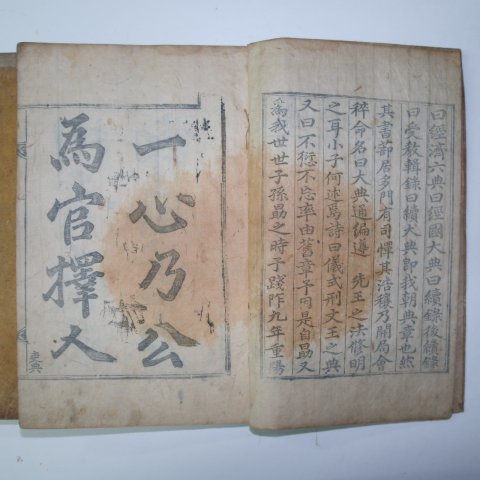 曰經濟六典曰經國大典曰續錄後續錄
曰受敎輯錄曰續大典卽我朝典章也然
其書部居多門有司憚其浩穰乃開局會
稡命名曰大典通編遵 先王之法修明
之耳小子何述焉詩曰儀式刑文王之典
又曰不愆不忘率由舊章予用是自勗又
爲我世世子孫勗之時予踐阼九年重陽
一心乃公
為官擇人
吏典